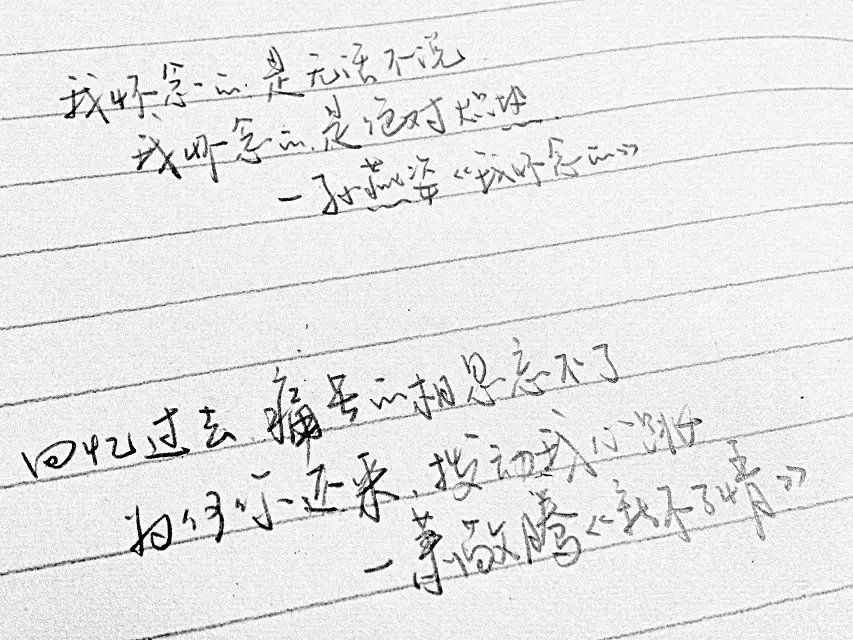 我怀念的是无话不说
我怀念的是绝对炽热
—孙燕姿《我怀念的》
回忆过去 痛苦的相思忘不了
为何你还来 拨动我心跳
—萧敬腾《新不了情》